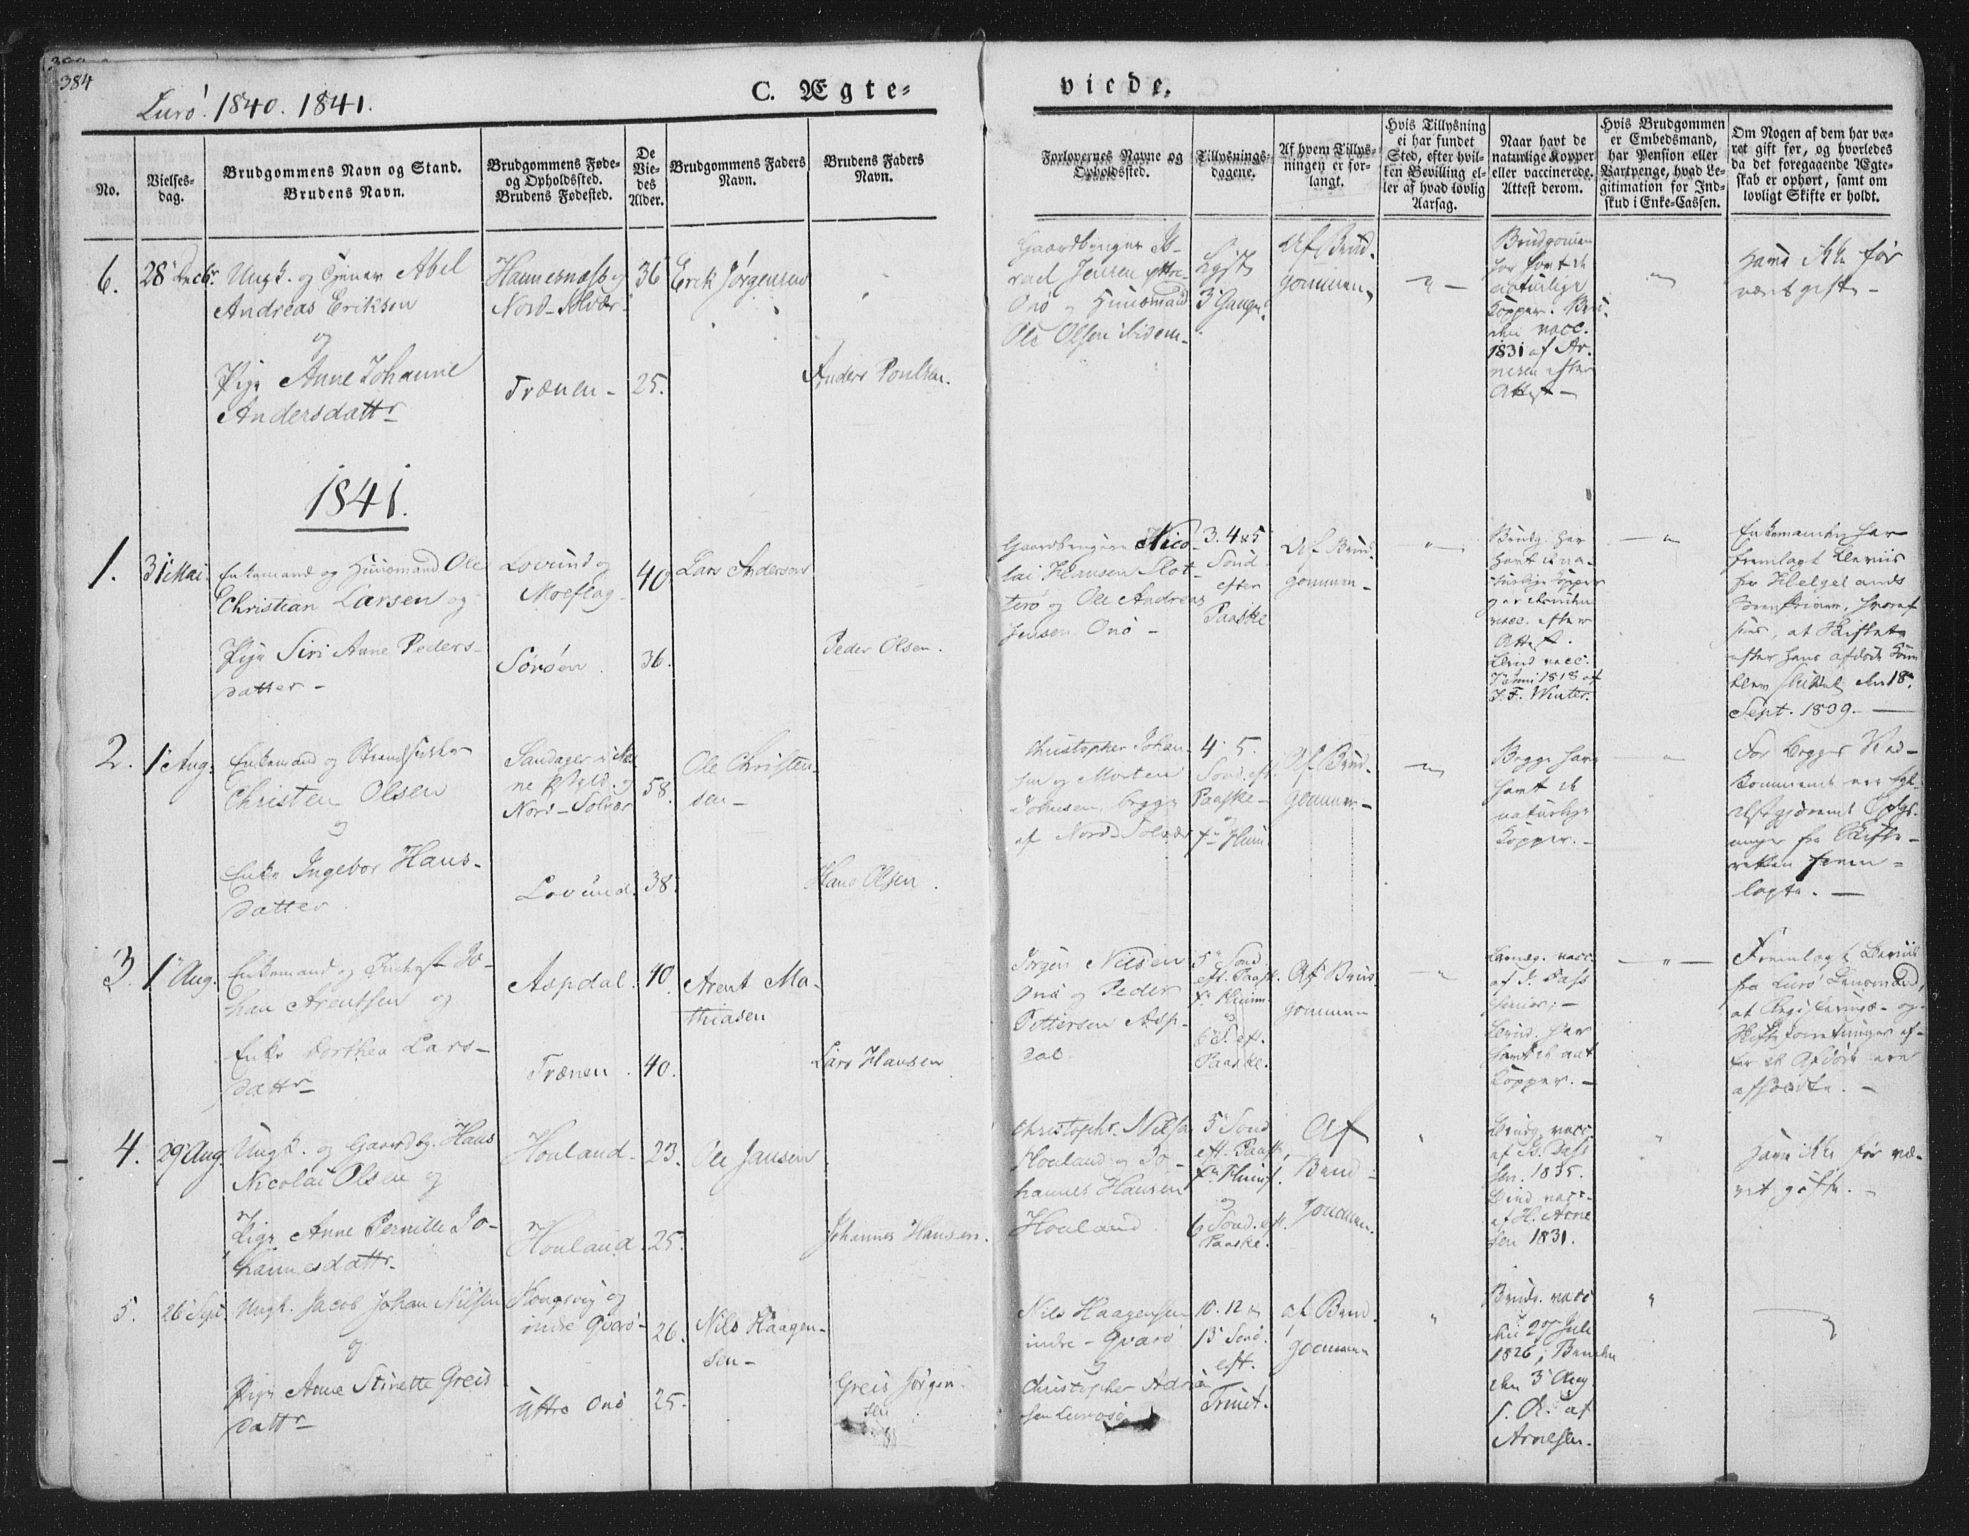 384
Lurö. 1840. 1841.
C. Ægte-
viede.
No.
Vielses-
dag.
Brudgommens Navn og Stand.
Brudens Navn.
Brudgommens Føde-
og Opholdssted.
Brudens Fødested.
De
Vie-
des
Alder.
Brudgommens Faders
Navn.
Brudens Faders
Navn.
Forlovernes Navne og
Opholdssted.
Tillysnings-
dagene.
Af hvem Tillys-
ningen er for-
langt.
Hvis Tillysning
ei har fundet
Sted, efter hvil-
ken Bevilling el-
ler af hvad lovlig
Aarsag.
Naar havt de
naturlige Kopper
eller vaccinerede.
Attest derom.
Hvis Brudgommen
er Embedsmand,
har Pension eller
Vartpenge, hvad Le-
gitimation for Ind-
skud i Enke-Cassen.
Om Nogen af dem har væ-
ret gift før, og hvorledes
da det foregaaende Ægte-
skab er ophørt, samt om
lovligt Skifte er holdt.
6.
28 Decbr.
Ungk. og Abel
Andreas Erikson
og
Pige Anne Johanne
Andersdattr
Hannesnæs og
Nord-Solvær
Trænen -
36
25.
Erik Jørgensen
Anders Poulsen.
Gaardbruger Is-
rael Jensen yttre
Onö og Huusmand
Ole Olsen ibidem -
Lyst
3 Gange.
Af Brud-
gommen
Brudgommen
har havt de
naturlige
Kopper. Bru-
den vacc.
1831 af Ar-
nesen efter
Attest -
Have ikke før
været gifte -
1841.
1.
31 Mai.
Enkemand og Huusmand Ole
Christian Larsen og
Pige Siri Anne Peders-
datter -
Lovund og
Moeflag
Söröen.
40
36.
Lars Anderson
Peder Olsen.
Gaardbrugere Nico-
lai Hansen Slot-
terö og Ole Andreas
Jensen Onö -
3. 4 & 5
Sönd.
efter
Paaske
Af Brud-
gommen -
Brudg. har
havt de na-
turlige Kopper
vacc. efter
Attest.
Brud vacc.
1818 af
J. F. Winter.
Enkemanden har
fremlagt Beviis
fra Helgelands
Sorenskriver, hvoraf
sees, at Skiftet
efter hans afdöde Kone
blev sluttet den 18
Sept. 1839. -
2.
1 Aug.
Enkemand og Strandsidder
Christen Olsen
og
Enke Ingebor Hans-
datter
Sandager i
Nord-Solvær
Lovund.
58.
38.
Ole Christen-
sen -
Hans Olsen.
Christopher Johan-
sen og Morten
Johnsen, begge
af Nord-Solvær
4. 5.
Sönd. eft.
Paaske -
Af Brud-
gommen -
Begge have
havt de
naturlige
Kopper. -
For begges Ved-
kommende
fra Skifte-
retten frem-
lagte. -
3.
1 Aug.
Enkemand og Jo-
han Arentsen og
Enke Dorthea Lars-
dattr
Aspdal.
Trænen.
40.
40.
Arent Ma-
thiasen
Lars Hansen
Jörgen Nilsen
Onö og Peder
Pettersen Asp-
dal
5 Sönd.
eft. Paask.
og
6 S. eft.
Paaske.
Af Brud-
gommen
Brudg. vacc.
af J. Dass
senior; -
Brud. har
havt de nat.
Kopper. -
Fremlagt Beviis
fra Lurö Lensmand,
4.
29 Aug.
Ungk. og Gaardbg. Hans
Nicolai Olsen og
Pige Anne Pernille Jo-
hannesdattr.
Houland -
Houland.
23.
25.
Ole Jansen
Johannes Hansen.
Christophr. Nilsen
Houland og Jo-
hannes Hansen
Houland
5 Sönd
eft. Paask.
og
6 Sönd. eft.
Paaske.
Af
Brud-
gommen.
Brudg. vacc
af B. Dass
sen. 1835.
Brud vacc.
af H. Arne-
sen 1831.
Have ikke før væ-
ret gifte. -
5.
26 Sept.
Ungk. Jacob Johan Nilsen
og
Pige Anne Stinette Greis
dattr
Kongsvig og
indre Qvarö -
Üttre Onö
26.
25.
Nils Haagen-
sen -
Greis Jörgen-
sen
Nils Haagensen
indre - Qvarö
og
Christopher Adrian
sen Lurösö
10. 12 &
13 Sönd.
eft.
Trinit.
af Brud-
gommen
Brudg. vacc
den 27 Juli
1826; Bruden
den 3 Aug
s. A. af
Arnesen.